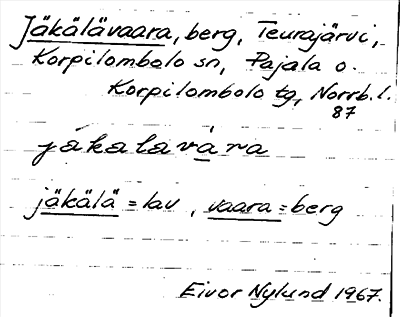 Jäkälävaara, berg, Teurajärvi,
Korpilombolo sn, Pajala o.
Korpilombolo tg, Norrb. l.
87
jäkälävāra
jäkälä = lav, vaara = berg
Eivor Nylund 1967.